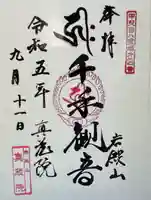 奉拝
千手観音
岩殿山
令和五年
九月十一日
真蔵院